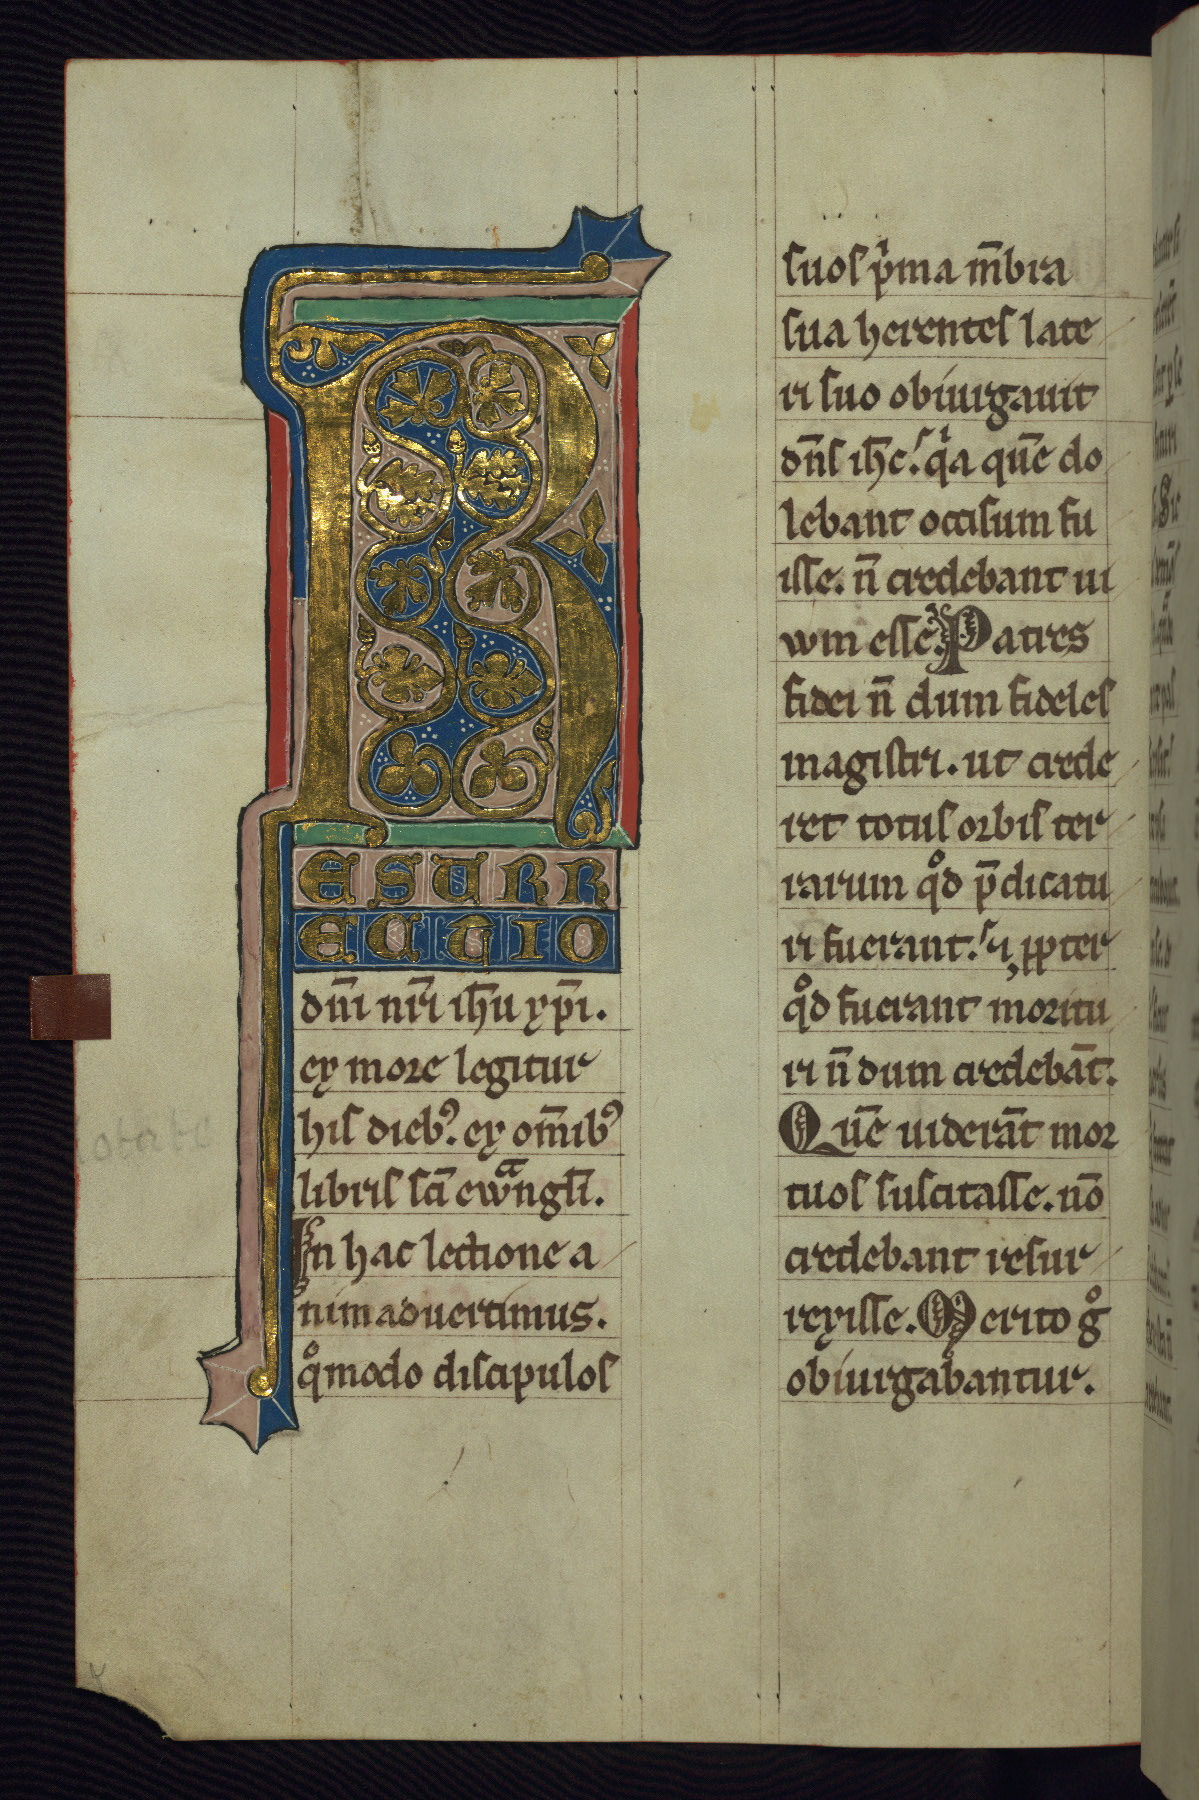 R
ESURR
ECTIO
dn̄i nr̄i ih̄u xp̄i.
ex more legitur
his dieb᷒. ex om̄ib᷒
libris sc̄i ewͣngl̄i.
In hac lectione a
nimaduertimus.
qͦmodo discipulos
suos pͥma m̄bra
sua herentes late
ri suo obiurgauit
dn̄s ih̄c. qͥa que̅ do
lebant occisum fu
isse. n̄ credebant ui
uum esse. Patres
fidei n̄ dum fideles
magistri. ut crede
ret totus orbis ter
rarum qͦd p̄dicatu
ri fuerant. ꝓpter
qͦd fuerant moritu
ri n̄ dum credeba̅t.
Que̅ uidera̅t mor
tuos suscitasse. no̅
credebant resur
rexisse. Merito gͦ
obiurgabantur.